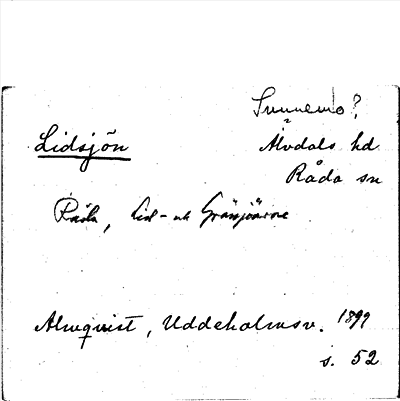 Sunnemo?
Lidsjön
Älvdals hd
Råda sn
Råda, Lid- och Gräsjöarne
Almquist, Uddeholmsv. 1899
s. 52